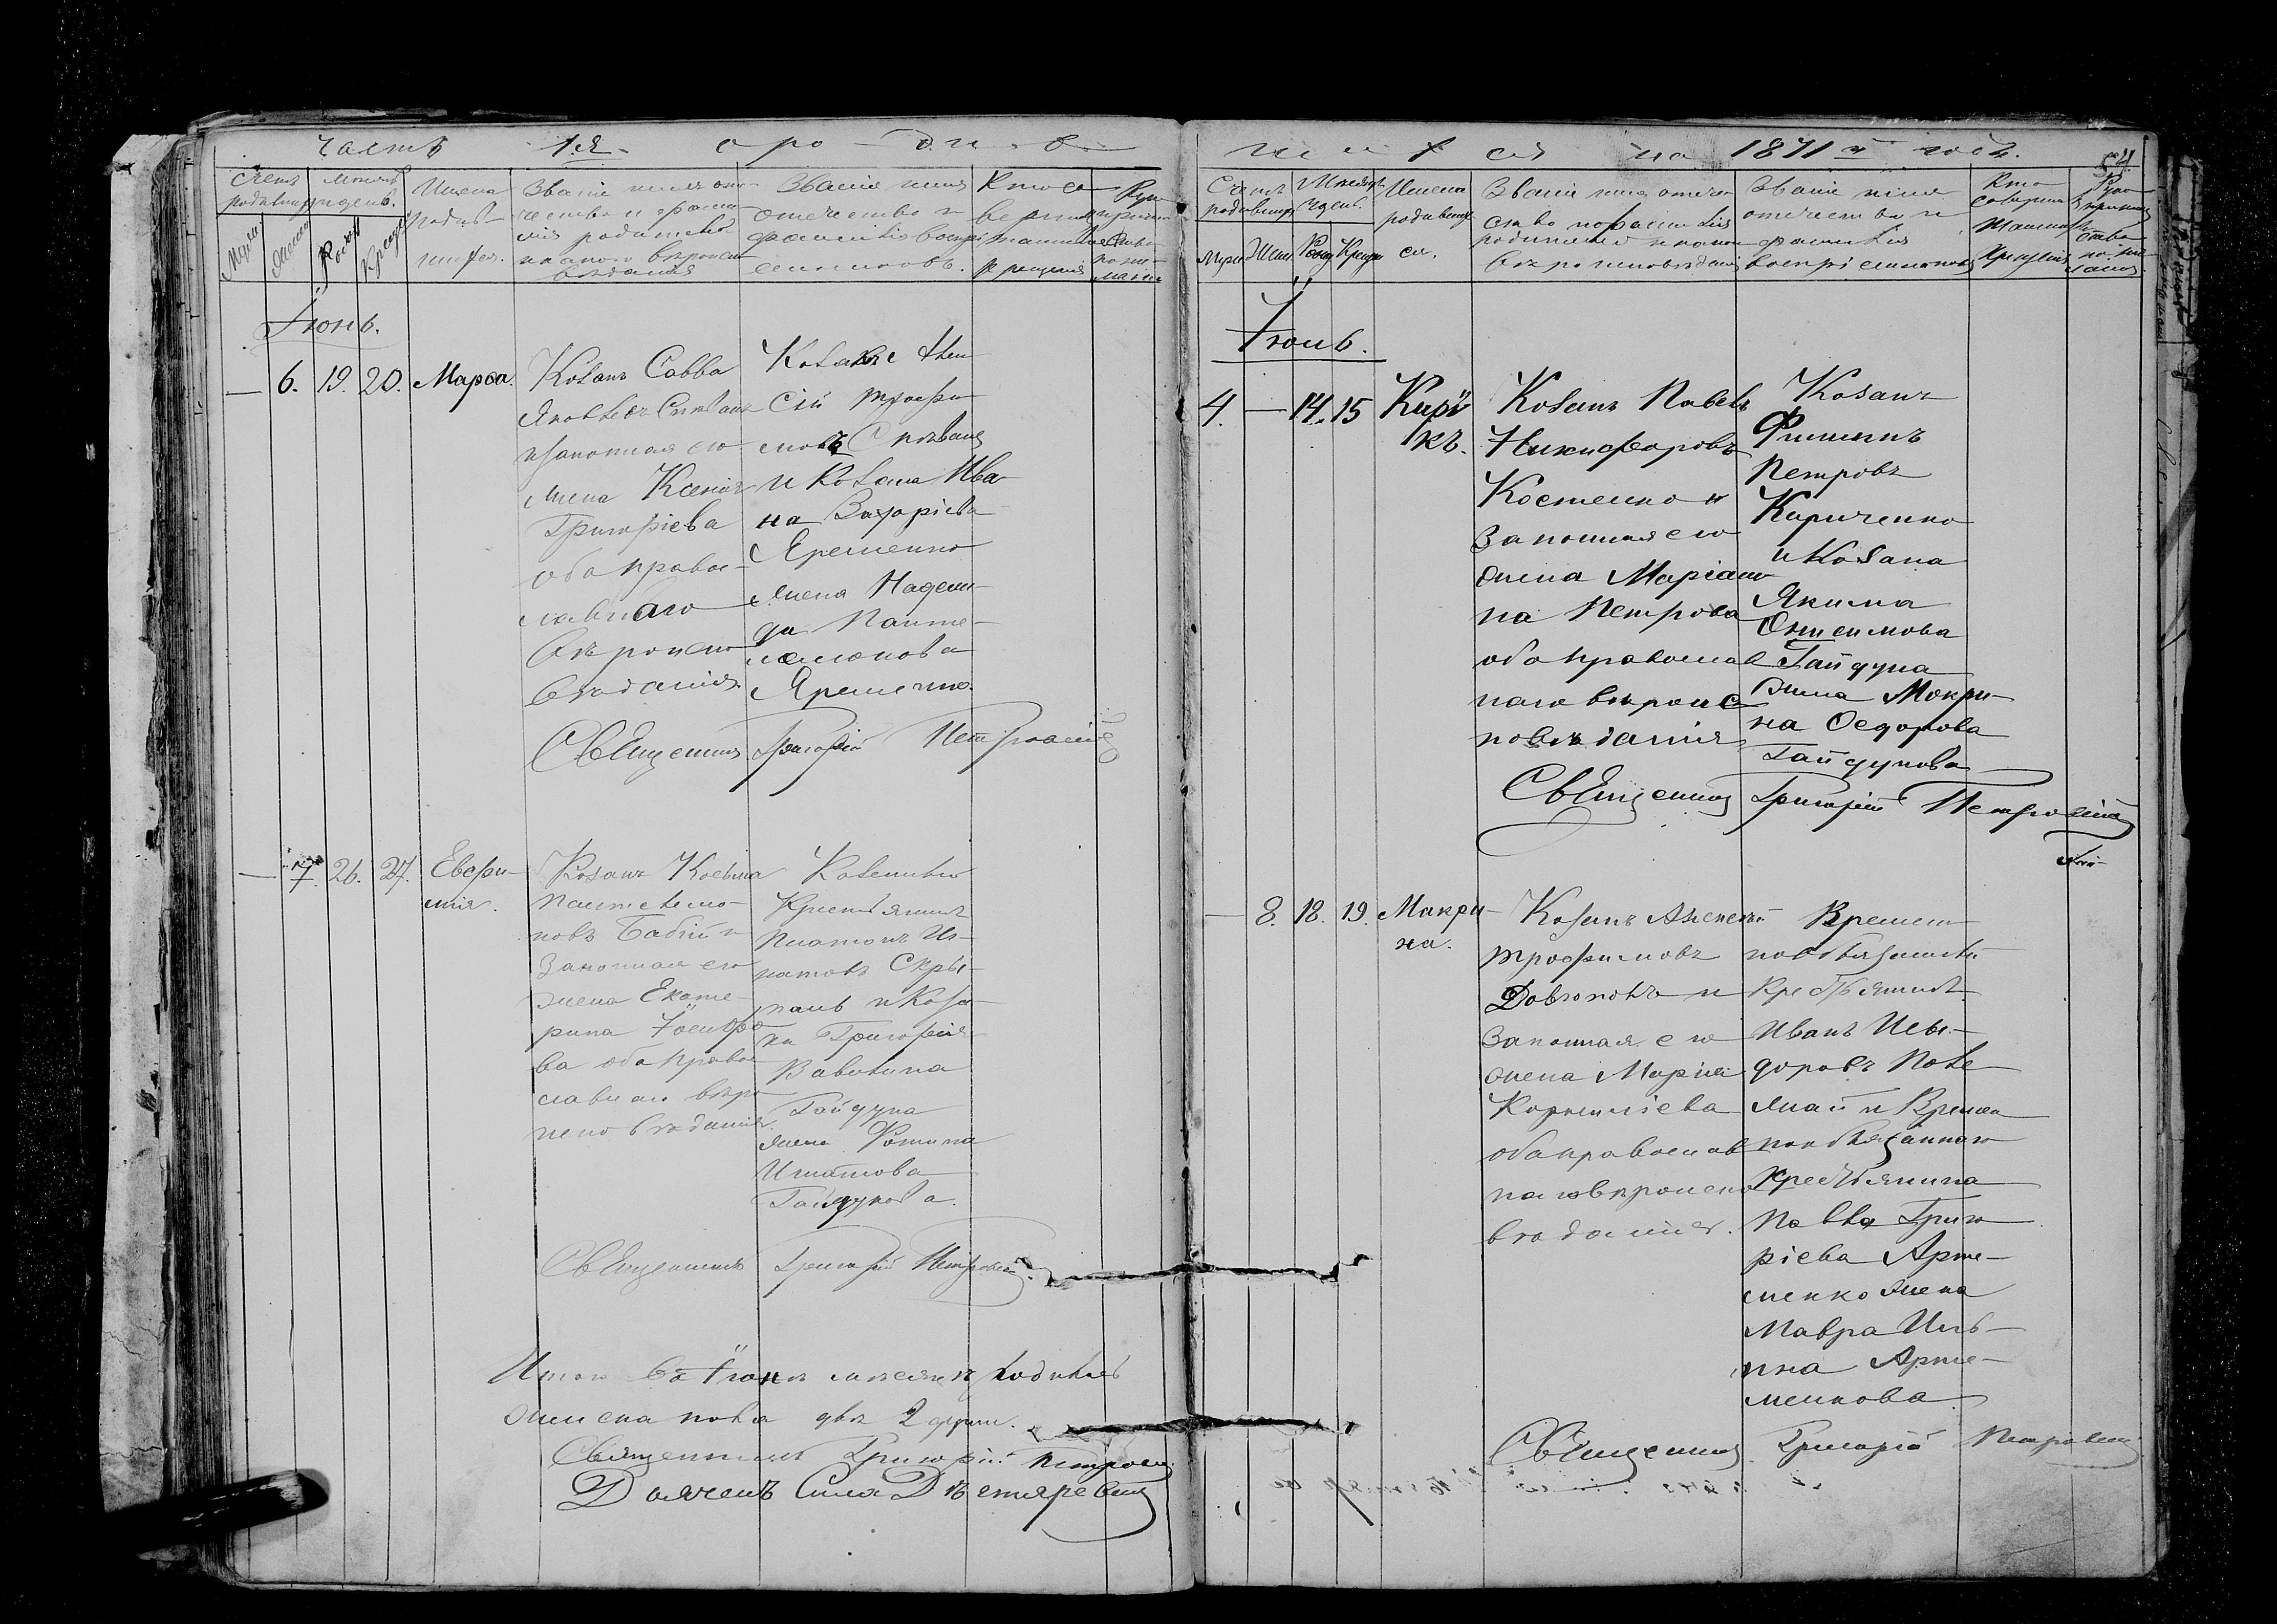 Часть 1.я. о ро - ди в
Счетъ родившихся
Мѣсяцъ и день.
Имена родив-
шихся.
Званіе имя оте-
чество и фами-
лія родителей
и какого вѣроиспо-
вѣданія
Званія имя
отечество и
фамилія воспрі
емниковъ.
Кто со
вершилъ
таинство
крещенія
Іюнь.
— 6. 19. 20. Марѳа.
Козакъ Савва
Яковлевъ
и законная его
жена Ксенія
Григоріева
оба право-
славнаго
вѣроиспо
вѣданія.
Козакъ Але
ксій Трофи
мовъ
и Козака Ива
на Захаріева
Яременко
жена Надеж-
да Панте-
леимонова
Яременко.
Священникъ Григорій Петровскій
— 7. 26. 27. Евфи-
мія.
Козакъ Косьма
Пантелеимо-
новъ Бабій и
Законная его
жена Екате-
рина
ва оба право
славнаго вѣро
исповѣданія.
Крестьянинъ
Платонъ Иг-
натовъ Скры-
паль и Коза-
ка Григорія
Вавилина
Гайдука
жена Фотина
Игнатова
Гайдукова.
Священникъ Григорій Петровскій
Итого въ Іюнѣ мѣсяцѣ родилось
женска пола двѣ 2 души.
Священникъ Григорій Петровскій
Дьячекъ Сила Дѣхтяревскій
ш и х ся на 1871й годъ.
54
Счетъ
родившихся
Мѣсяцъ
и день.
Имена
родивших
ся.
Званіе имя отече
ство и фамилія
родителей и какого
вѣроисповѣданія
Званіе имя
отечество и
фамилія
воспріемниковъ
Кто
совершилъ
таинство
крещенія
Іюль.
4. — 14. 15 Кирі
къ.
Козакъ Павелъ
Никифоровъ
Костенко и
Законная его
жена Маріан-
на Петрова
оба православ
наго вѣроис
повѣданія
Козакъ
Филиппъ
Петровъ
Кириченко
и Козака
Якима
Онисимова
Гайдука
жена Мокри-
на Ѳедорова
Гайдукова
Священникъ Григорій Петровскій
— 8. 18. 19. Макри-
на.
Козакъ Алексѣй
Трофимовъ
Довгополъ и
Законная его
жена Марія
Корниліева
оба православ
наго вѣроиспо
вѣданія.
Времен
нообязанный
Крестьянинъ
Иванъ Иси-
доровъ Поле
жай и Времен
нообязаннаго
Крестьянина
Павла Григо
ріева Арте-
менко жена
Мавра Иль-
ина Арте-
менкова.
Священникъ Григорій Петровскій